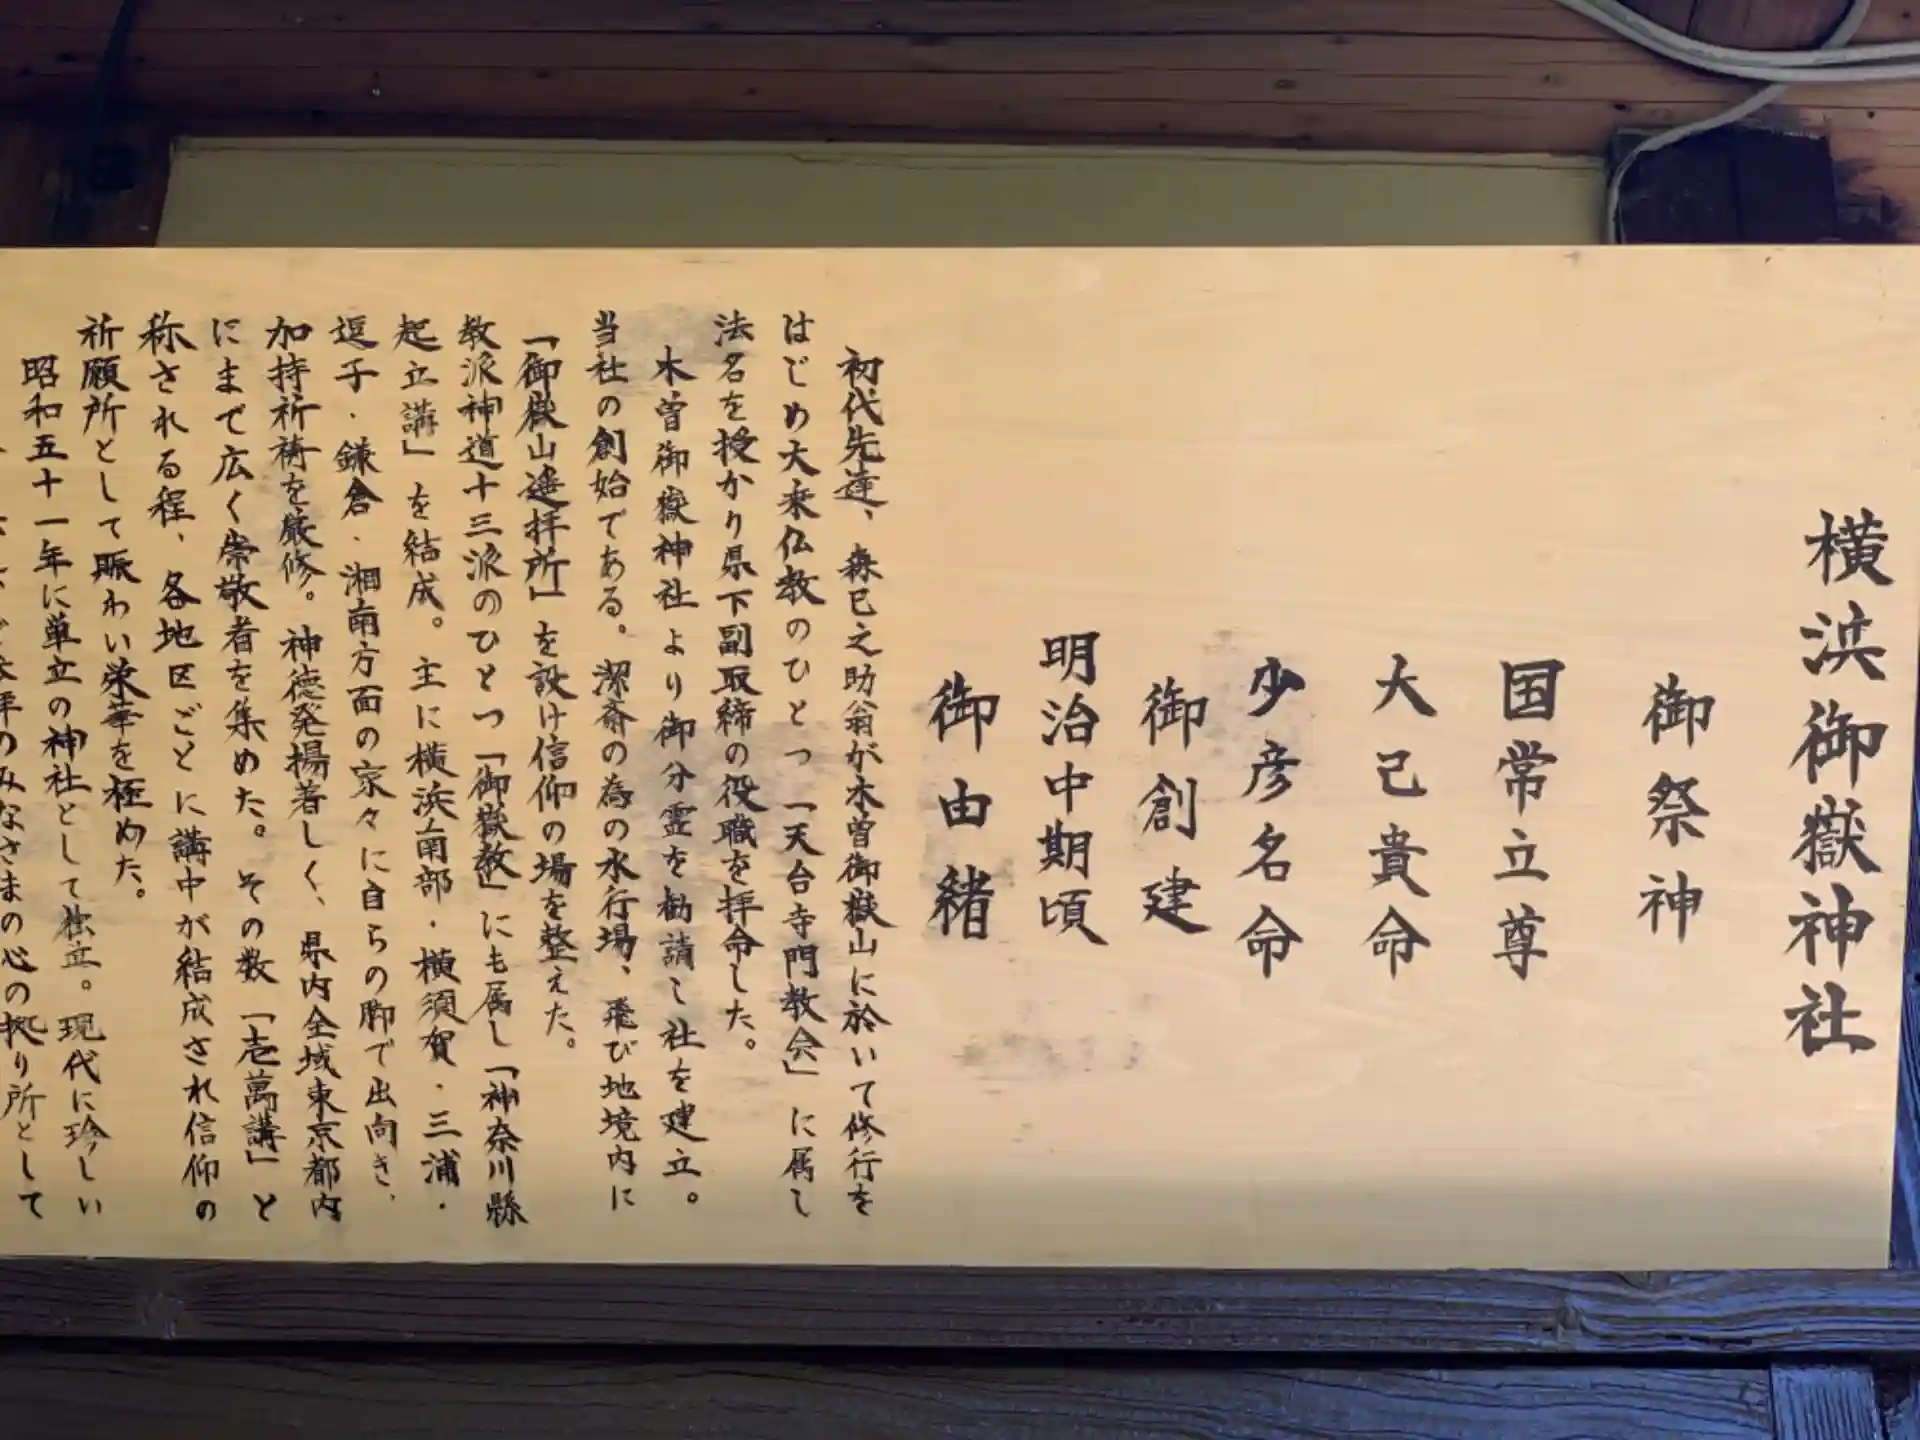 横浜御嶽神社
御祭神
国常立尊
大己貴命
少彦名命
御創建
明治中期頃
御由緒
初代先達、森巳之助翁が木曽御嶽山に於いて修行を
はじめ大乗仏教のひとつ「天台寺門教会」に属し
法名を授かり県下副取締の役職を拝命した。
木曽御嶽神社より御分霊を勧請し社を建立。
当社の創始である。潔斎の為の水行場、飛び地境内に
「御嶽山遥拝所」を設け信仰の場を整えた。
教派神道十三派のひとつ「御嶽教」にも属し「神奈川縣
起立講」を結成。主に横浜南部・横須賀・三浦・
逗子・鎌倉・湘南方面の家々に自らの脚で出向き、
加持祈祷を厳修。神徳発揚著しく、県内全域東京都内
にまで広く崇敬者を集めた。その数「壱萬講」と
称される程、各地区ごとに講中が結成され信仰の
祈願所として賑わい栄華を極めた。
昭和五十一年に単立の神社として独立。現代に珍しい
拝のみなさまの心の拠り所として